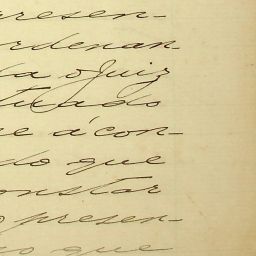 presen-
ordenan-
da o Juiz
tuado
e á con-
do que
onstar
o presen-
no que